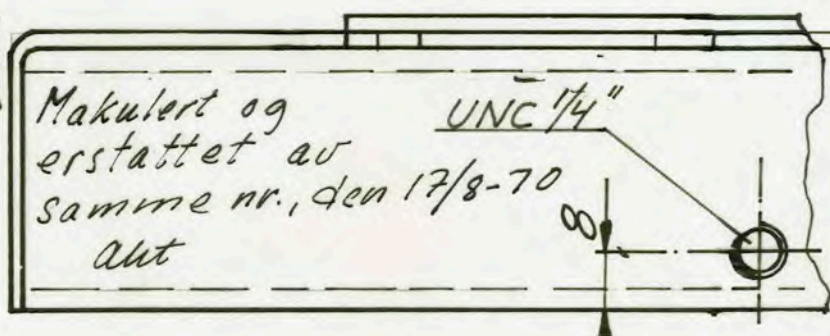 Makulert og
erstattet av
samme nr., den 17/8-70
UNC 1/4"
8